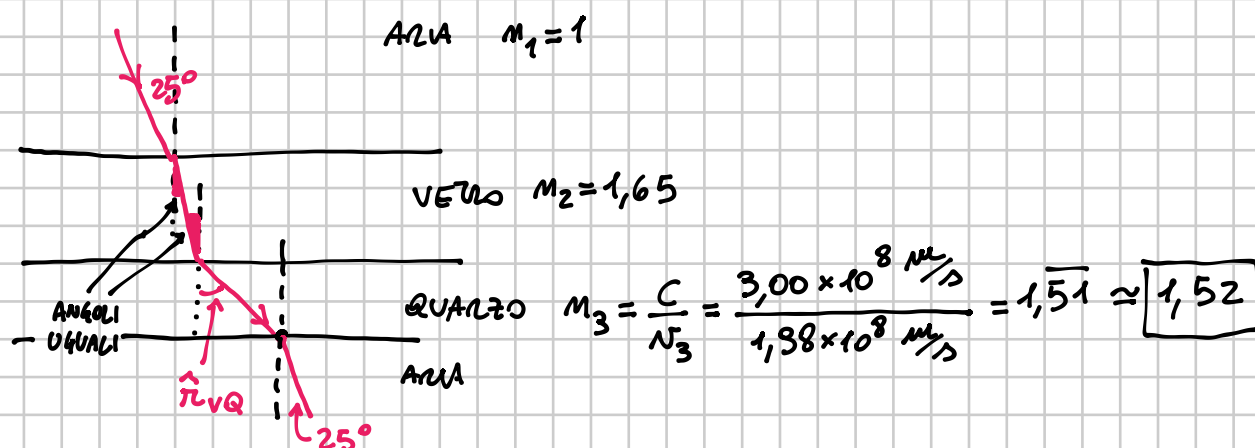 ARIA n₁ = 1
25°
VETRO n₂ = 1,65
ANGOLI
UGUALI
QUARZO n₃ = c/v₃ = 3,00 × 10⁸ m/s / 1,98 × 10⁸ m/s = 1,5̅1̅ ≃ 1,52
ARIA
r̂ᵥQ
25°